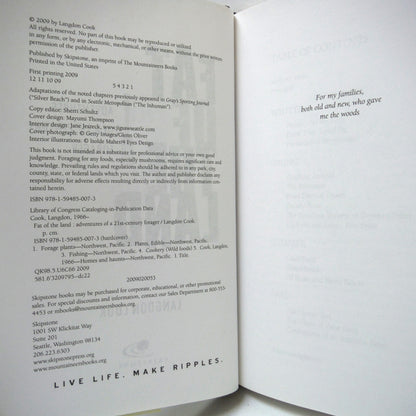 © 2009 by Langdon Cook
All rights reserved. No part of this book may be reproduced or utilized
in any form, or by any electronic, mechanical, or other means, without the prior written
permission of the publisher.
Published by Skipstone, an imprint of The Mountaineers Books
Printed in the United States
First printing 2009
12 11 10 09
5 4 3 2 1
Adaptations of the noted chapters previously appeared in Gray's Sporting Journal
("Silver Beach") and in Seattle Metropolitan ("The Inhuman").
Copy editor: Sherri Schultz
Cover design: Mayumi Thompson
Interior design: Jane Jeszeck, www.jigsawseattle.com
Cover photograph: © Getty Images/Glenn Oliver
Interior illustrations: © Isolde Maher/4 Eyes Design
This book is not intended as a substitute for professional advice or your own good
judgment. Foraging for any foods, especially mushrooms, requires significant care and
knowledge. Prevailing rules and regulations should be adhered to in any park, city,
county, state, or federal lands which you visit. The author and publisher disclaim any
responsibility for adverse effects resulting directly or indirectly from information con-
tained herein.
ISBN 978-1-59485-007-3
Library of Congress Cataloging-in-Publication Data
Cook, Langdon, 1966–
: adventures of a 21st-century forager / Langdon Cook.
p. cm.
ISBN 978-1-59485-007-3 (hardcover)
1. Forage plants—Northwest, Pacific. 2. Plants, Edible—Northwest, Pacific.
3. Fishing—Northwest, Pacific. 4. Cookery (Wild foods) 5. Cook, Langdon,
1966—Homes and haunts—Northwest, Pacific. I. Title.
QK98.5.U6C66 2009
581.6'3209795–dc22
2009020055
Skipstone books may be purchased for corporate, educational, or other promotional
sales. For special discounts and information, contact our Sales Department at 800-553-
4453 or mbooks@mountaineersbooks.org.
Skipstone
1001 SW Klickitat Way
Suite 201
Seattle, Washington 98134
206.223.6303
www.skipstonepress.org
www.mountaineersbooks.org
LIVE LIFE. MAKE RIPPLES.
For my families,
both old and new, who gave
me the woods